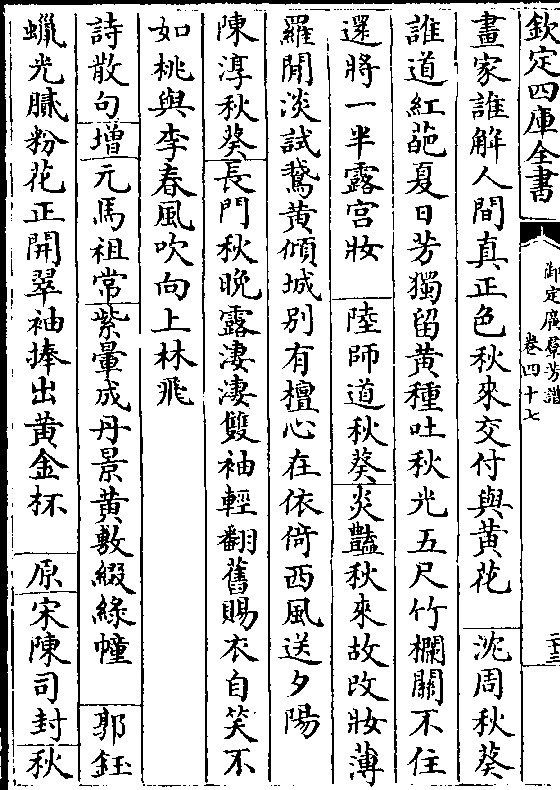 欽定四庫全書
御定廣羣芳譜
卷四十七
二十三
畫家誰解人間真正色秋來交付與黃花 沈周秋葵
誰道紅葩夏日芳獨留黃種吐秋光五尺竹欄關不住
還將一半露宮妝 陸師道秋葵炎豔秋來故改妝薄
羅閒淡試鵞黃傾城别有檀心在依倚西風送夕陽
陳淳秋葵長門秋晚露淒淒雙袖輕翻舊賜衣自笑不
如桃與李春風吹向上林飛
詩散句增元馬祖常紫暈成丹景黃敷綴綠幢 郭鈺
蠟光膩粉花正開翠袖捧出黃金杯 原宋陳司封秋